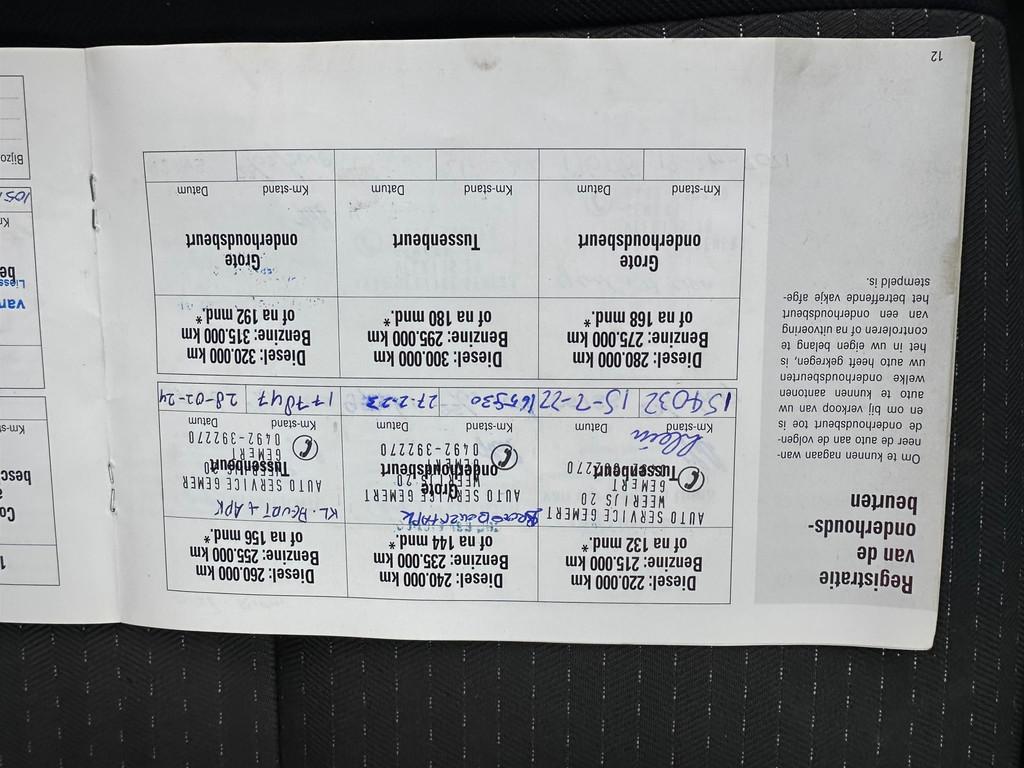 Registratie
van de
onderhouds-
beurten
Om te kunnen nagaan wan-
neer de auto aan de volgen-
de onderhoudsbeurt toe is
en om bij verkoop van uw
auto te kunnen aantonen
welke onderhoudsbeurten
uw auto heeft gekregen, is
het in uw eigen belang te
controleren of na uitvoering
van een onderhoudsbeurt
het betreffende vakje afge-
stempeld is.
Diesel: 220.000 km
Benzine: 215.000 km
of na 132 mnd.*
AUTO SERVICE GEMERT
WEERIJS 20
GEMERT
Tussenbeurt
Klein
Km-stand
Datum
154032
15-7-22
Diesel: 240.000 km
Benzine: 235.000 km
of na 144 mnd.*
AUTO SERVICE GEMERT
Grote
WEERIJS 20
onderhoudsbeurt
GEMERT
0492-392270
Km-stand
Datum
165530
27-2-23
Diesel: 260.000 km
Benzine: 255.000 km
of na 156 mnd.*
KL. BEURT + APK
AUTO SERVICE GEMER
WEERIJS 20
Tussenbeurt
GEMERT
0492-392270
Km-stand
Datum
177847
28-02-24
Diesel: 280.000 km
Benzine: 275.000 km
of na 168 mnd.*
Grote
onderhoudsbeurt
Km-stand
Datum
Diesel: 300.000 km
Benzine: 295.000 km
of na 180 mnd.*
Tussenbeurt
Km-stand
Datum
Diesel: 320.000 km
Benzine: 315.000 km
of na 192 mnd.*
Grote
onderhoudsbeurt
Km-stand
Datum
12
Co
besc
Km-s
van
Liess
be
Bijzo